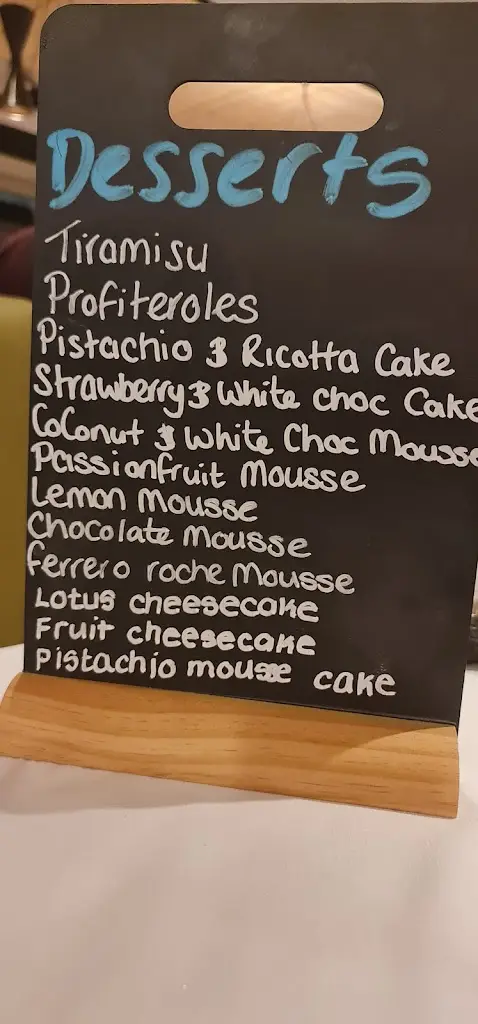 Desserts
Tiramisu
Profiteroles
Pistachio & Ricotta Cake
Strawberry & White choc Cake
Coconut & White Choc Mousse
Passionfruit Mousse
Lemon Mousse
Chocolate Mousse
ferrero roche Mousse
Lotus cheesecake
Fruit cheesecake
Pistachio mousse cake